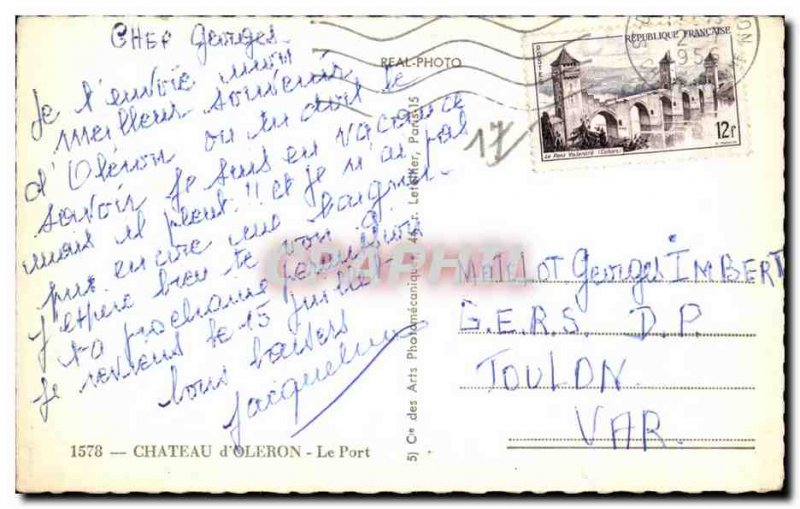 CHER Georges
Je t'envoie mon
meilleur souvenir
d'Oléron ou tu doit le
savoir je suis en vacance
mais il pleut!! et je n'ai pas
pus encore me baigner.
J'espère bien te voir a
ta prochaine permission
Je reviens le 15 juillet
bons baisers
Jacqueline
1578 — CHATEAU d'OLERON - Le Port
REAL-PHOTO
5) Cie des Arts Photomécaniques, 44, r. Letellier, Paris-15
17
RÉPUBLIQUE FRANÇAISE
Le Pont Valentré (Cahors)
12f
1956
CRAPHTI
Matelot Georges IMBERT
G.E.R.S. D.P.
TOULON.
VAR.